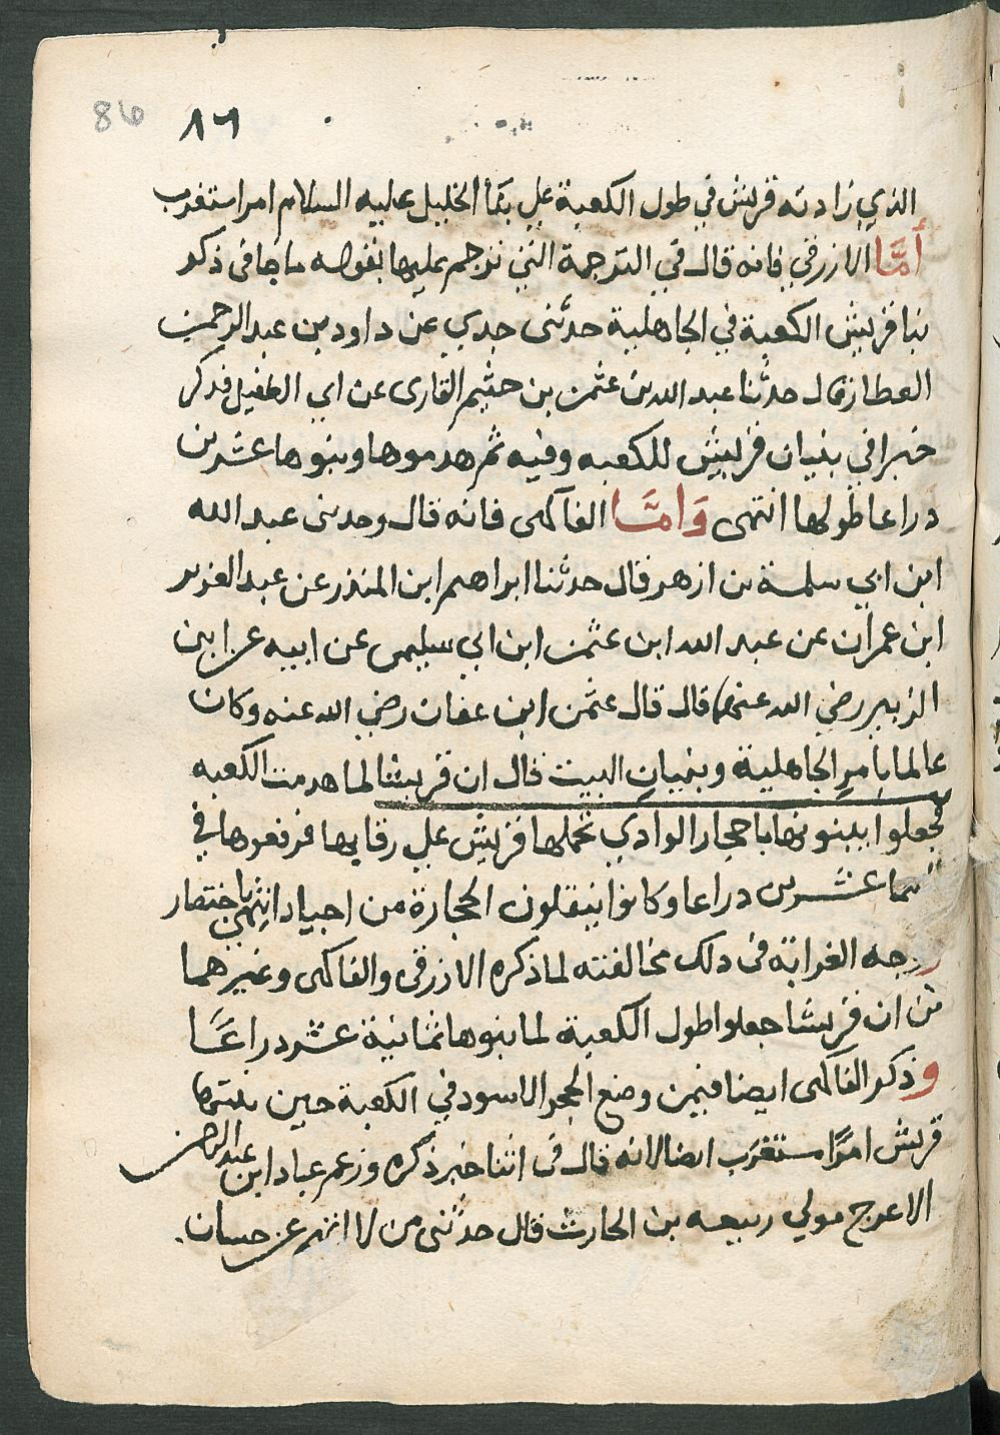 86 ٨٦
الذي زادته قريش في طول الكعبة علي بنا الخليل عليه السلام امر استغرب
أمَّا الازرقي فانه قال في الترجمة التي ترجم عليها بقوله ما جا في ذكر
بنا قريش الكعبة في الجاهلية حدثنى جدي عن داود بن عبد الرحمن
العطار قال حدثنا عبد الله بن عثمن بن خثيم القارى عن ابي الطفيل فذكر
خبرا في بنيان قريش للكعبه وفيه ثم هدموها وبنوها عشرين
دراعا طولها انتهى وَامَّا الفاكهى فانه قال وحدثنى عبد الله
ابن ابي سلمة بن ازهر قال حدثنا ابراهيم ابن المنذر عن عبد العزيز
ابن عمران عن عبد الله ابن عثمن ابن ابي سليمن عن ابيه عن ابن
الزبير رضي الله عنهما قال قال عثمن ابن عفان رضي الله عنه وكان
عالما بامر الجاهلية وبنيان البيت قال ان قريشا لما هدمت الكعبه
فجعلوا يبنونها باحجار الوادي تحملها قريش علي رقابها فرفعوها في
السما عشرين دراعا وكانوا ينقلون الحجارة من اجياد انتهى باختصار
ووجه الغرابة فى دلك مخالفته لما ذكره الازرقى والفاكهى وغيرهما
من ان قريشا جعلوا طول الكعبة لما بنوها ثمانية عشر دراعًا
وذكر الفاكهى ايضا فيمن وضع الحجر الاسود في الكعبة حين بنتها
قريش امرًا مستغرب ايضا لانه قال فى اثنا خبر ذكره وزعم عباد ابن عبد الرحمن
الاعرج مولي ربيعه بن الحارث قال حدثنى من لا اتهم عن حسان